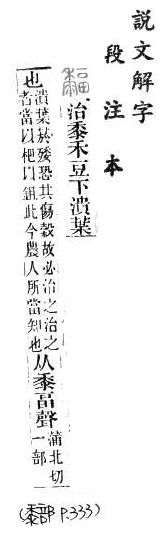 說文解字
段注本
治黍禾豆下潰葉
也潰葉菸㱱恐其傷穀故必治之治之
者當以杷以鉏此今農人所當知也
从黍畐聲蒲北切
一部
(黍部 P.333)